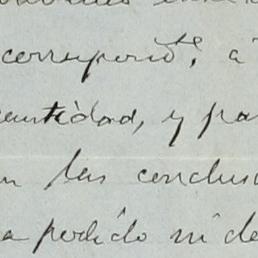 correspondte, á
cantidad, y pa
n las conclus
a pedido ni de